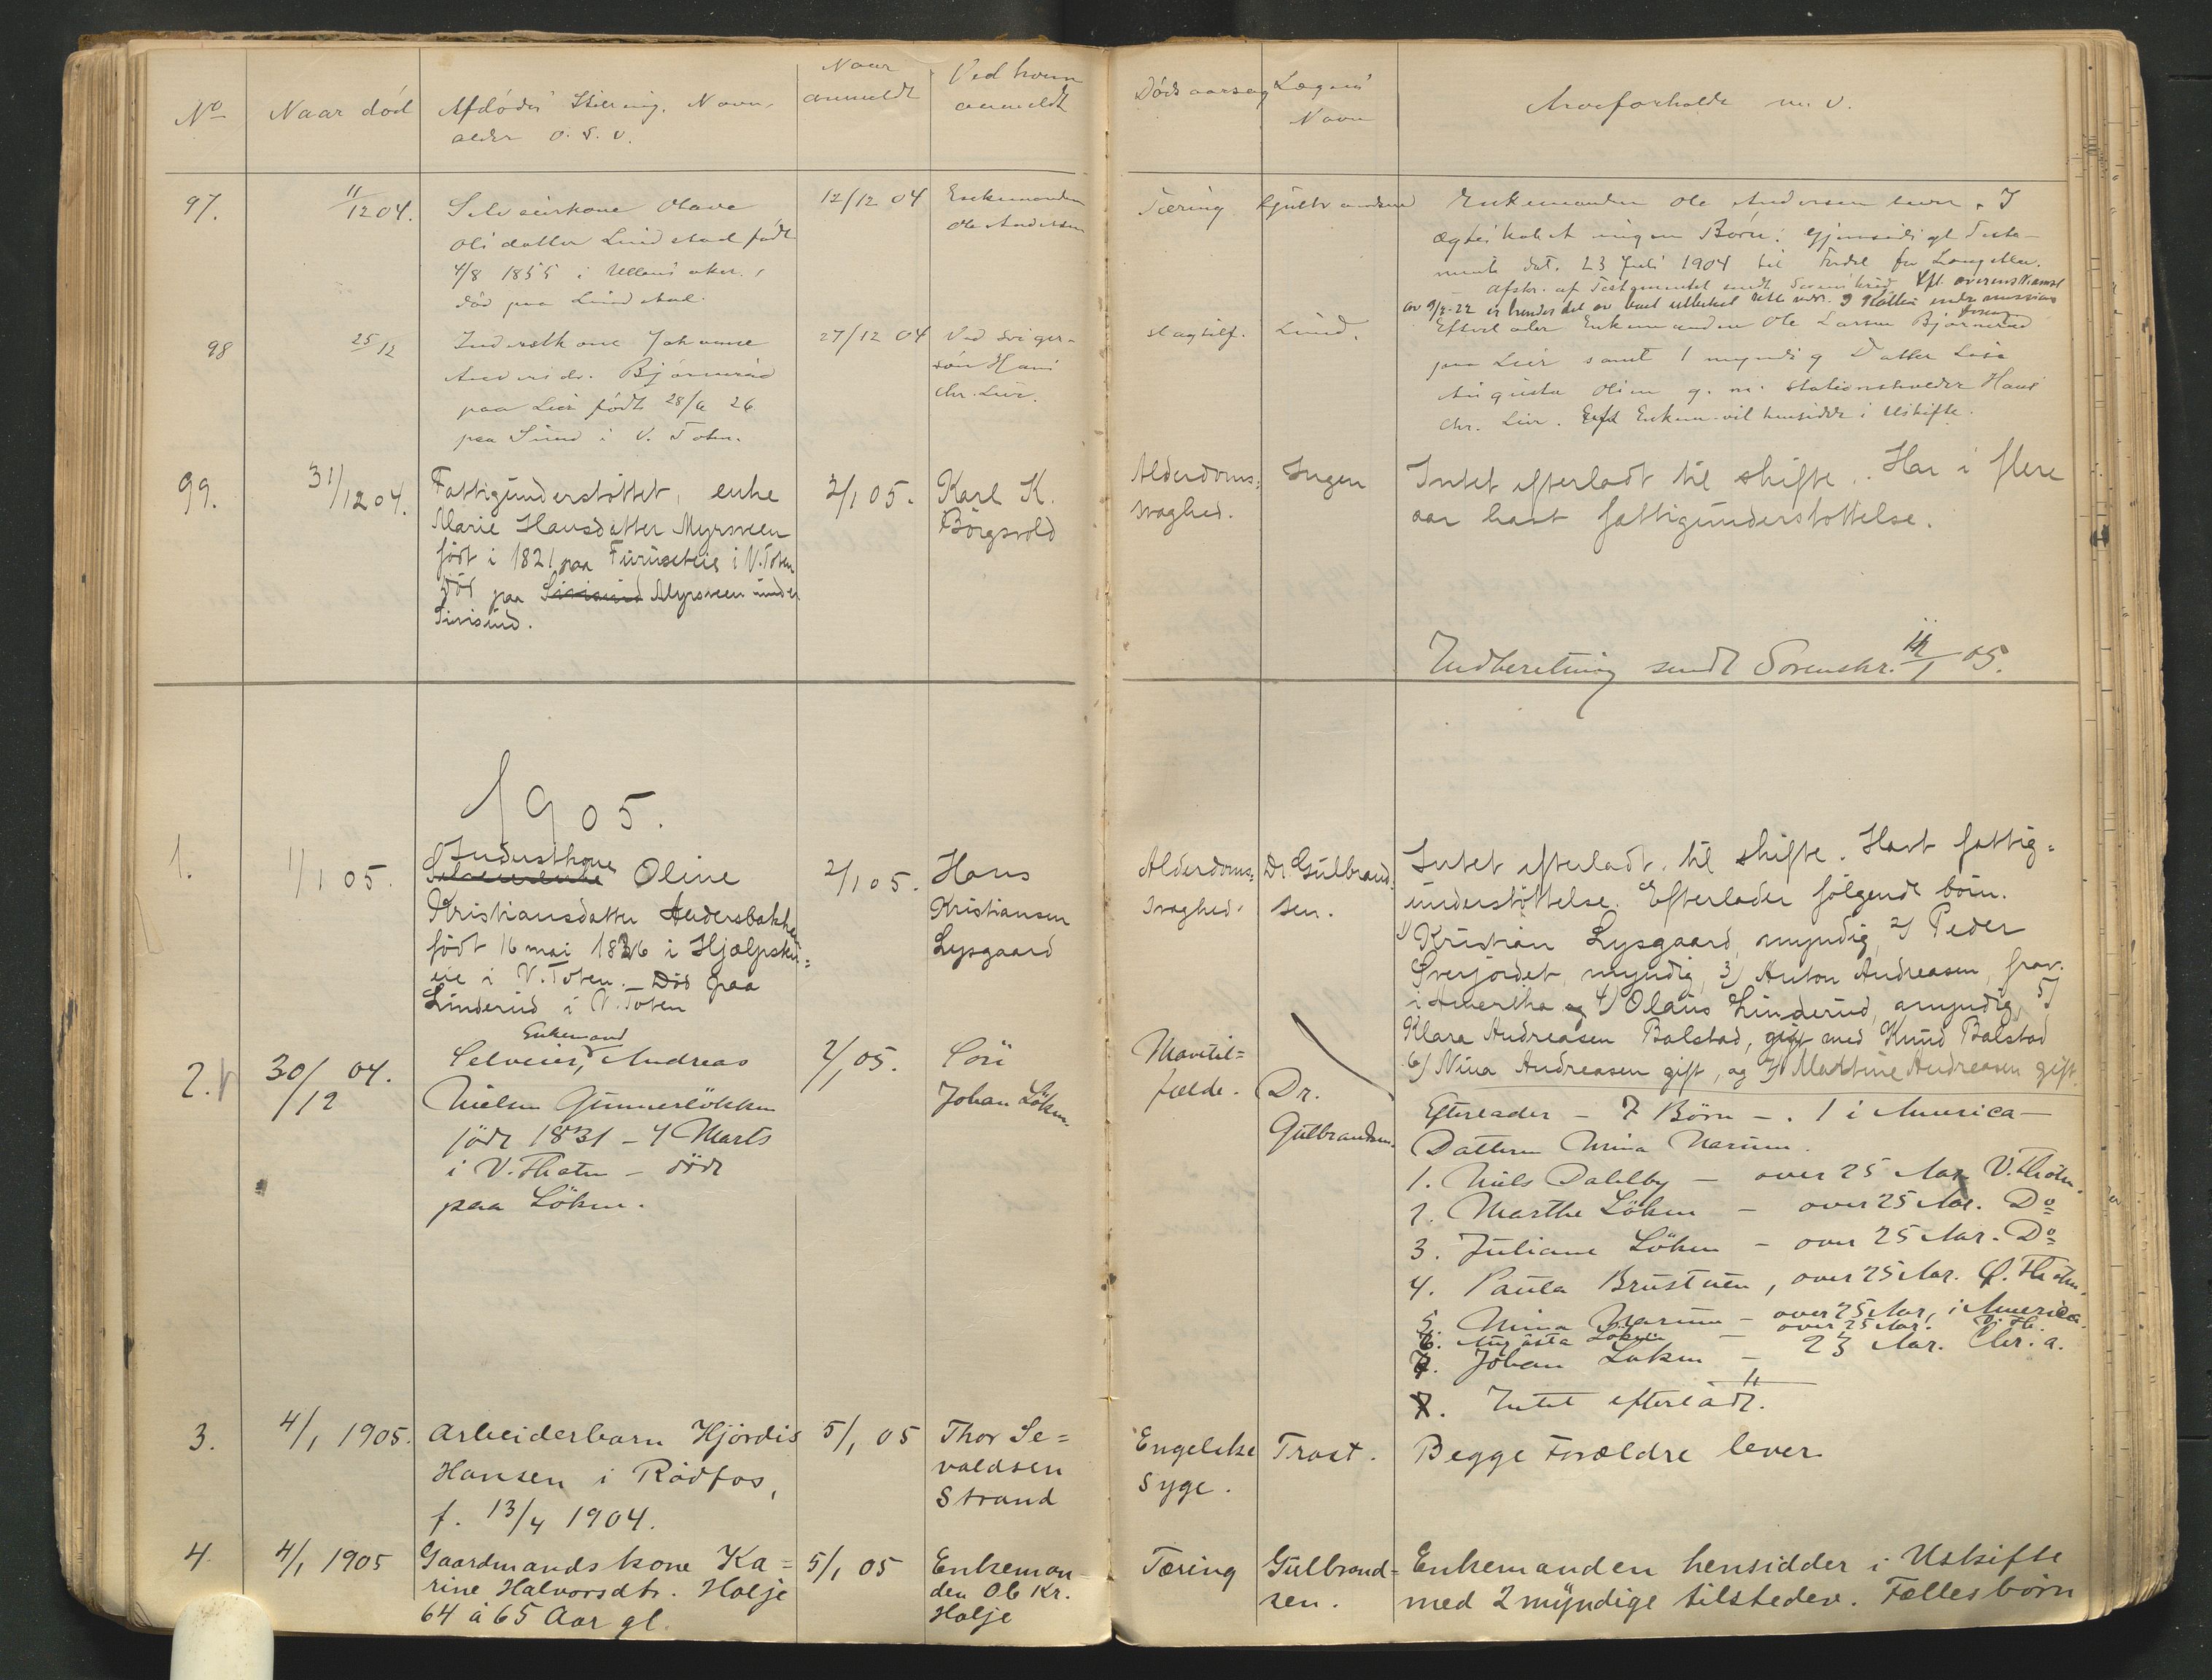 No
Naar död
Afdödes Stilling, Navn,
alder o.s.v.
Naar
anmeldt
Ved hvem
anmeldt
Dödsaarsag
Lægens
Navn
Arveforholde m.v.
97.
11/12 04.
Selveierkone Olave
Olsdatter Lindstad födt
4/8 1855 i Ullensaker,
död paa Lindstad.
12/12 04
Enkemanden
Ole Andersen
Tæring
Gjulbrandsen
Enkemanden Ole Andersen lever. I
ægteskabet ingen Börn. Gjensidigt Testa-
mente dat. 23 Juli 1904 til Fordel for Længstlev.
Afskr. af Testamentet sendt Sorenskriv. Ifl. overenskomst
av 9/3-22 er hendes del av boet utlukket
98
25/12
Inderstkone Johanne
Andersdr. Björnerud
paa Lier födt 28/6 26
paa Sund i V. Toten.
27/12 04
Ved sviger-
sön Hans
Chr. Lier.
Slagtilf.
Lund.
Efterlader Enkemanden Ole Larsen Björnerud
paa Lier samt 1 myndig Datter Lise
Augusta Olsen g. m. Stationsholder Hans
Chr. Lier. Enkem. vil hensidde i Uskifte.
99.
31/12 04.
Fattigunderstöttet, enke
Marie Hansdatter Myrsveen
födt i 1821 paa Furuseteie i V. Toten
död paa Sivisind Myrsveen under
Sivisind.
2/1 05.
Karl K.
Börgsvold
Alderdoms-
svaghed.
Ingen
Intet efterladt til skifte. Har i flere
aar havt fattigunderstöttelse.
Indberetning sendt Sorenskr. 14/1 05.
1905.
1.
1/1 05.
Inderstkone
Selveierenke Oline
Kristiansdatter Andersbakken
födt 16 mai 1836 i Hjælpsku-
eie i V. Toten. Död paa
Linderud i V. Toten
2/1 05.
Hans
Kristiansen
Lysgaard
Alderdoms-
svaghed.
Dr. Gulbrand-
sen.
Intet efterladt til skifte. Havt fattig-
understöttelse. Efterlader fölgende börn.
1) Kristian Lysgaard, myndig, 2) Peder
Överjordet, myndig, 3) Anton Andreasen, frav.
i Amerika og 4) Olaus Linderud, amyndig, 5)
Klara Andreasen Balstad, gift med Knud Balstad
6) Nina Andreasen gift, og 7) Martine Andreasen gift.
2.
30/12 04.
Enkemand
Selveier, Andreas
Nielsen Gunnerlökken
födt 1831 - 4 Marts
i V. Thoten - död
paa Löken.
2/1 05.
Sön
Johan Löken.
Mavetil-
fælde.
Dr.
Gulbrandsen.
Efterlader - 7 Börn -. 1 i America -
Datteren Mina Narum.
1. Niels Dahlby - over 25 Aar V. Thoten.
2. Marthe Löken - over 25 Aar. Do
3. Juliane Löken - over 25 Aar. Do
4. Paula Brustuen, over 25 Aar. Ö. Thoten.
5. Mina Narum - over 25 Aar, i America.
6. Augusta Löken - over 25 Aar. V. Th.
7. Johan Löken - 23 Aar. Chr.a.
Intet efterladt.
3.
4/1 1905.
Arbeiderbarn Hjördis
Hansen i Rödfos,
f. 13/4 1904.
5/1 05
Thor Se-
valdsen
Strand
Engelske
Syge.
Trost.
Begge Forældre lever
4
4/1 1905
Gaardmandskone Ka-
rine Halvorsdtr. Holje
64 à 65 Aar gl.
5/1 05
Enkeman-
den Ole Kr.
Holje
Tæring
Gulbrand-
sen.
Enkemanden hensidder i Uskifte
med 2 myndige tilsteder. Fællesbörn